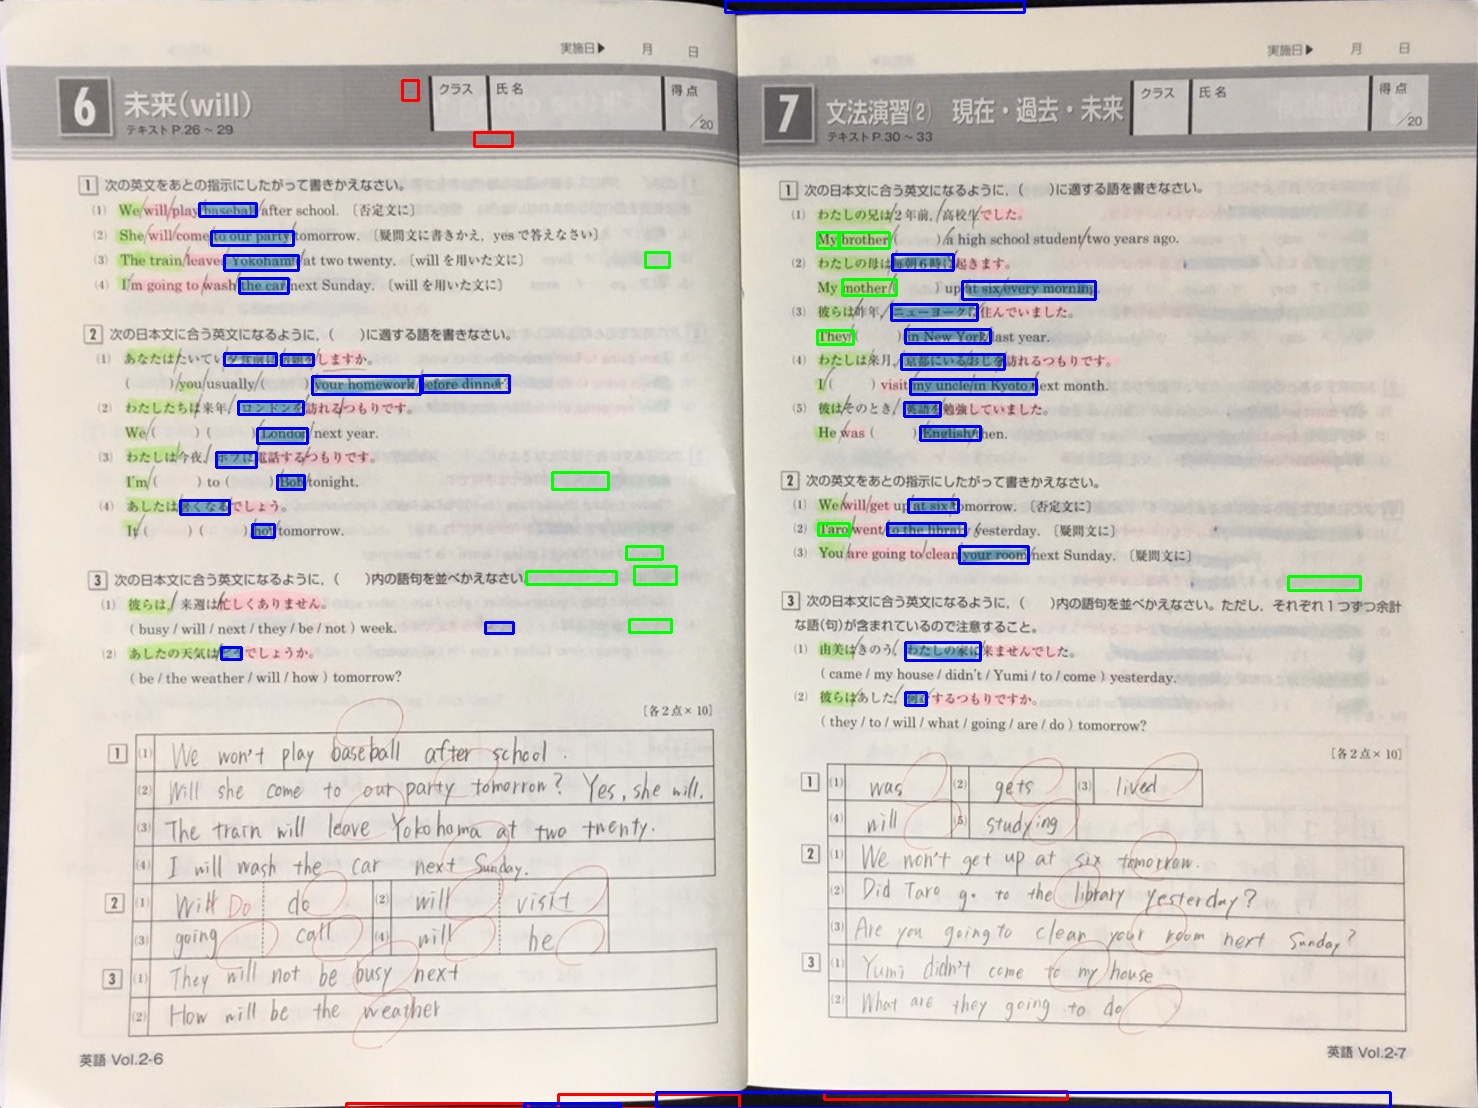 実施日▶ 月 日
6 未来(will)
テキストP.26～29
クラス 氏名 得点 /20
1 次の英文をあとの指示にしたがって書きかえなさい。
(1) We/will/play/baseball/after school. 〔否定文に〕
(2) She/will/come/to our party/tomorrow. 〔疑問文に書きかえ, yesで答えなさい〕
(3) The train/leaves/Yokohama/at two twenty. 〔willを用いた文に〕
(4) I'm going to/wash/the car/next Sunday. 〔willを用いた文に〕
2 次の日本文に合う英文になるように, ( )に適する語を書きなさい。
(1) あなたは/たいてい/夕食前に/宿題を/しますか。
( )/you/usually/( )/your homework/before dinner?
(2) わたしたちは/来年,/ロンドンを/訪れる/つもりです。
We/( ) ( )/London/next year.
(3) わたしは/今夜,/ボブに/電話する/つもりです。
I'm/( ) to ( )/Bob/tonight.
(4) あしたは/暑くなる/でしょう。
It/( ) ( )/hot/tomorrow.
3 次の日本文に合う英文になるように, ( )内の語句を並べかえなさい。
(1) 彼らは,/来週は/忙しくありません。
( busy / will / next / they / be / not ) week.
(2) あしたの天気は/どう/でしょうか。
( be / the weather / will / how ) tomorrow?
〔各2点×10〕
1 (1) We won't play baseball after school.
(2) Will she come to our party tomorrow? Yes, she will.
(3) The train will leave Yokohama at two twenty.
(4) I will wash the car next Sunday.
2 (1) Will Do do (2) will visit
(3) going call (4) will be
3 (1) They will not be busy next
(2) How will be the weather
英語 Vol.2-6
実施日▶ 月 日
7 文法演習(2) 現在・過去・未来
テキストP.30～33
クラス 氏名 得点 /20
1 次の日本文に合う英文になるように, ( )に適する語を書きなさい。
(1) わたしの兄は/2年前,/高校生/でした。
My brother/( )/a high school student/two years ago.
(2) わたしの母は/毎朝6時に/起きます。
My mother/( ) up/at six/every morning.
(3) 彼らは/昨年,/ニューヨークに/住んでいました。
They/( )/in New York/last year.
(4) わたしは/来月,/京都にいるおじを/訪れるつもりです。
I/( ) visit/my uncle/in Kyoto/next month.
(5) 彼は/そのとき,/英語を/勉強していました。
He was ( )/English/then.
2 次の英文をあとの指示にしたがって書きかえなさい。
(1) We/will/get up/at six/tomorrow. 〔否定文に〕
(2) Taro/went/to the library/yesterday. 〔疑問文に〕
(3) You/are going to/clean/your room/next Sunday. 〔疑問文に〕
3 次の日本文に合う英文になるように, ( )内の語句を並べかえなさい。ただし, それぞれ1つずつ余計
な語(句)が含まれているので注意すること。
(1) 由美は/きのう,/わたしの家に/来ませんでした。
( came / my house / didn't / Yumi / to / come ) yesterday.
(2) 彼らは/あした,/何を/するつもりですか。
( they / to / will / what / going / are / do ) tomorrow?
〔各2点×10〕
1 (1) was (2) gets (3) lived
(4) will (5) studying
2 (1) We won't get up at six tomorrow.
(2) Did Taro go to the library yesterday?
(3) Are you going to clean your room next Sunday?
3 (1) Yumi didn't come to my house
(2) What are they going to do
英語 Vol.2-7